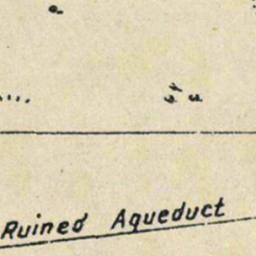 Ruined Aqueduct